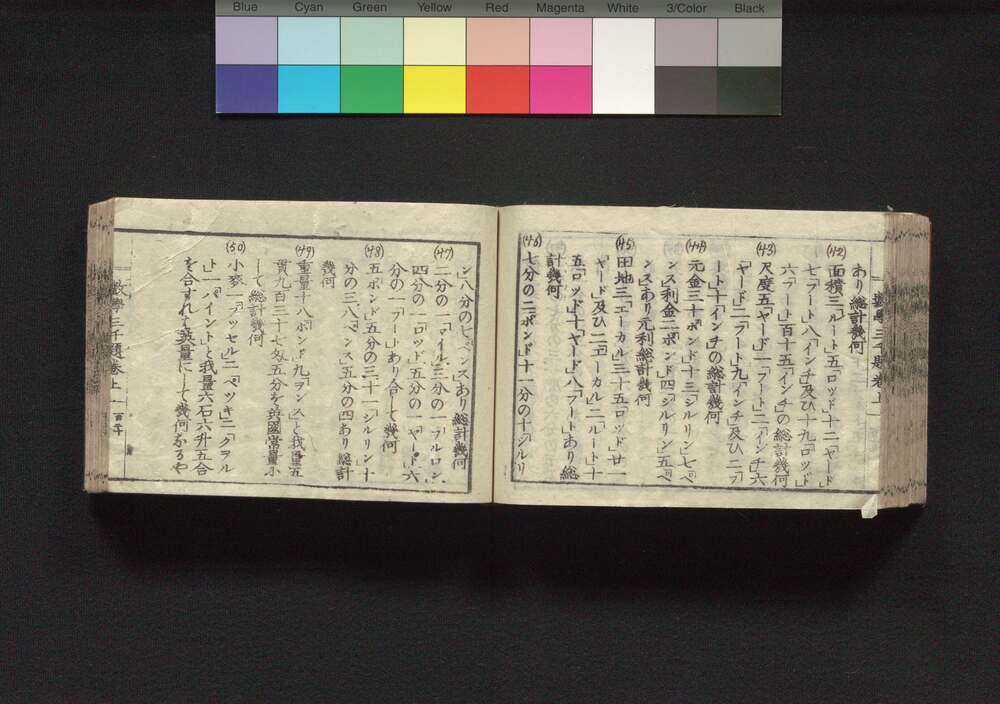 Blue Cyan Green Yellow Red Magenta White 3/Color Black
あり総計幾何
(42)
面積三「ルート」五「ロッド」十二「ヤード」
七「フート」八「インチ」及ひ十九「ロッド」
六「フート」百十五「インチ」の総計幾何
(43)
尺度五「ヤード」一「フート」二「インチ」六
「ヤード」二「フート」九「インチ」及ひ二「フ
ート」十「インチ」の総計幾何
(44)
元金三十「ポンド」十三「シルリン」七「ペ
ンス」利金二「ポンド」四「シルリン」五「ペ
ンス」あり元利総計幾何
(45)
田地三「エーカル」三十五「ロッド」廿一
「ヤード」及ひ二「エーカル」二「ルート」十
五「ロッド」十「ヤード」八「フート」あり総
計幾何
(46)
七分の二「ポンド」十一分の十「シルリ
ン」八分の七「ペンス」あり総計幾何
(47)
二分の一「マイル」三分の一「フルロン」
四分の一「ロッド」五分の一「ヤード」六
分の一「フート」あり合して幾何
(48)
五「ポンド」五分の三十一「シルリン」十
分の三八「ペンス」五分の四あり総計
幾何
(49)
重量十八「ポンド」九「ヲンス」と我量五
貫九百三十七匁五分を英國常量小
して総計幾何
(50)
小麥一「ブッセル」二「ペッキ」三「クヲル
ト」一「パイント」と我量六石六升五合
を合すれは英量にして幾何なるや
数學三千題卷上